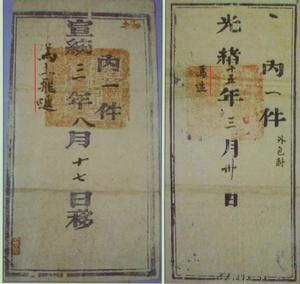 內一件
宣統三年八月十七日移
馬上飛遞
內一件
外包封
光緒十五年三月卅日
馬遞